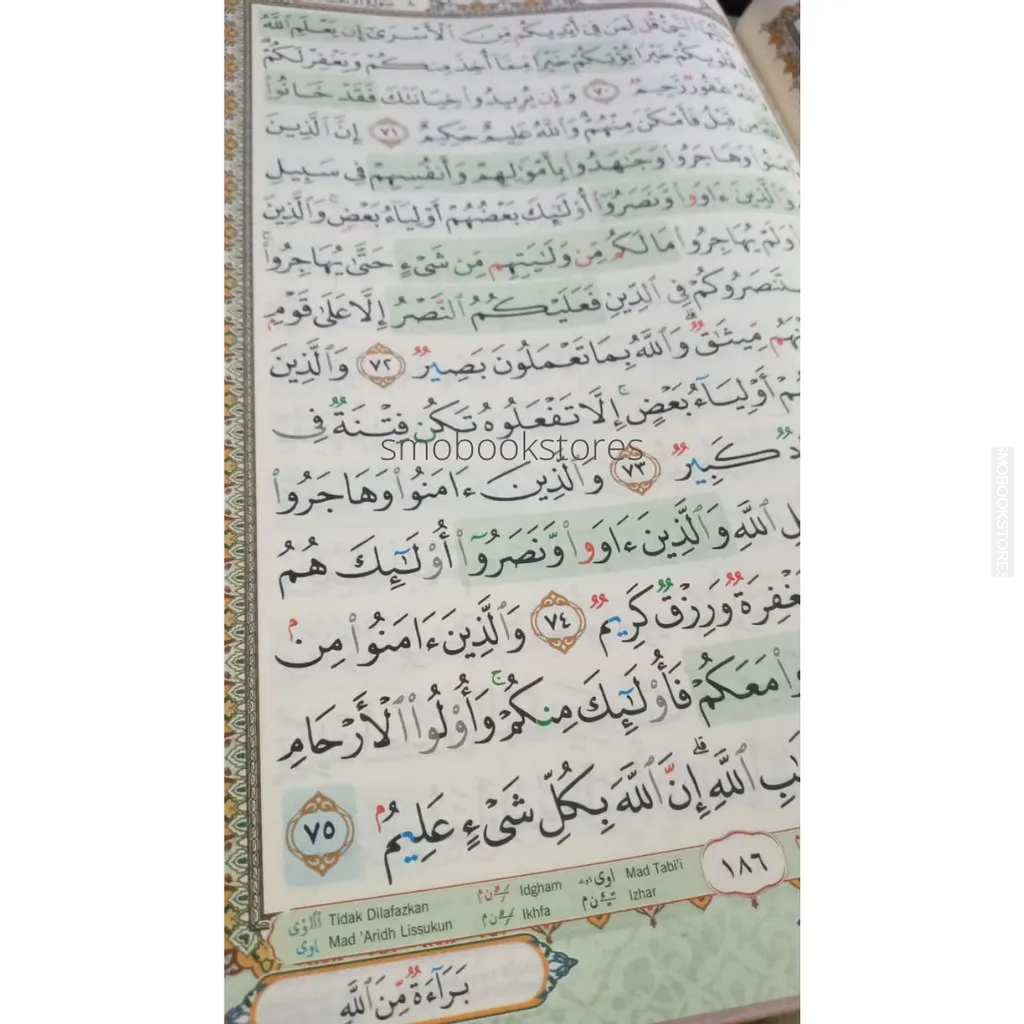 النَّبِىُّ قُل لِّمَن فِىٓ أَيْدِيكُم مِّنَ ٱلْأَسْرَىٰٓ إِن يَعْلَمِ ٱللَّهُ
قُلُوبِكُمْ خَيْرًا يُؤْتِكُمْ خَيْرًا مِّمَّآ أُخِذَ مِنكُمْ وَيَغْفِرْ لَكُمْ
غَفُورٌ رَّحِيمٌ ٧٠ وَإِن يُرِيدُوا۟ خِيَانَتَكَ فَقَدْ خَانُوا۟
مِن قَبْلُ فَأَمْكَنَ مِنْهُمْ وَٱللَّهُ عَلِيمٌ حَكِيمٌ ٧١ إِنَّ ٱلَّذِينَ
وَهَاجَرُوا۟ وَجَـٰهَدُوا۟ بِأَمْوَٰلِهِمْ وَأَنفُسِهِمْ فِى سَبِيلِ
وَٱلَّذِينَ ءَاوَوا۟ وَّنَصَرُوٓا۟ أُو۟لَـٰٓئِكَ بَعْضُهُمْ أَوْلِيَآءُ بَعْضٍ ۚ وَٱلَّذِينَ
وَلَمْ يُهَاجِرُوا۟ مَا لَكُم مِّن وَلَـٰيَتِهِم مِّن شَىْءٍ حَتَّىٰ يُهَاجِرُوا۟ ۚ
فِى ٱلدِّينِ فَعَلَيْكُمُ ٱلنَّصْرُ إِلَّا عَلَىٰ قَوْمٍۭ
مِّيثَـٰقٌ ۗ وَٱللَّهُ بِمَا تَعْمَلُونَ بَصِيرٌ ٧٢ وَٱلَّذِينَ
أَوْلِيَآءُ بَعْضٍ ۚ إِلَّا تَفْعَلُوهُ تَكُن فِتْنَةٌ فِى
كَبِيرٌ ٧٣ وَٱلَّذِينَ ءَامَنُوا۟ وَهَاجَرُوا۟
ٱللَّهِ وَٱلَّذِينَ ءَاوَوا۟ وَّنَصَرُوٓا۟ أُو۟لَـٰٓئِكَ هُمُ
وَرِزْقٌ كَرِيمٌ ٧٤ وَٱلَّذِينَ ءَامَنُوا۟ مِنۢ
مَعَكُمْ فَأُو۟لَـٰٓئِكَ مِنكُمْ ۚ وَأُو۟لُوا۟ ٱلْأَرْحَامِ
ٱللَّهِ ۗ إِنَّ ٱللَّهَ بِكُلِّ شَىْءٍ عَلِيمٌۢ ٧٥
smobookstores
SMOBOOKSTORES
١٨٦
Tidak Dilafazkan Idgham Mad Tabi'i
Mad 'Aridh Lissukun Ikhfa Izhar
بَرَآءَةٌ مِّنَ ٱللَّهِ